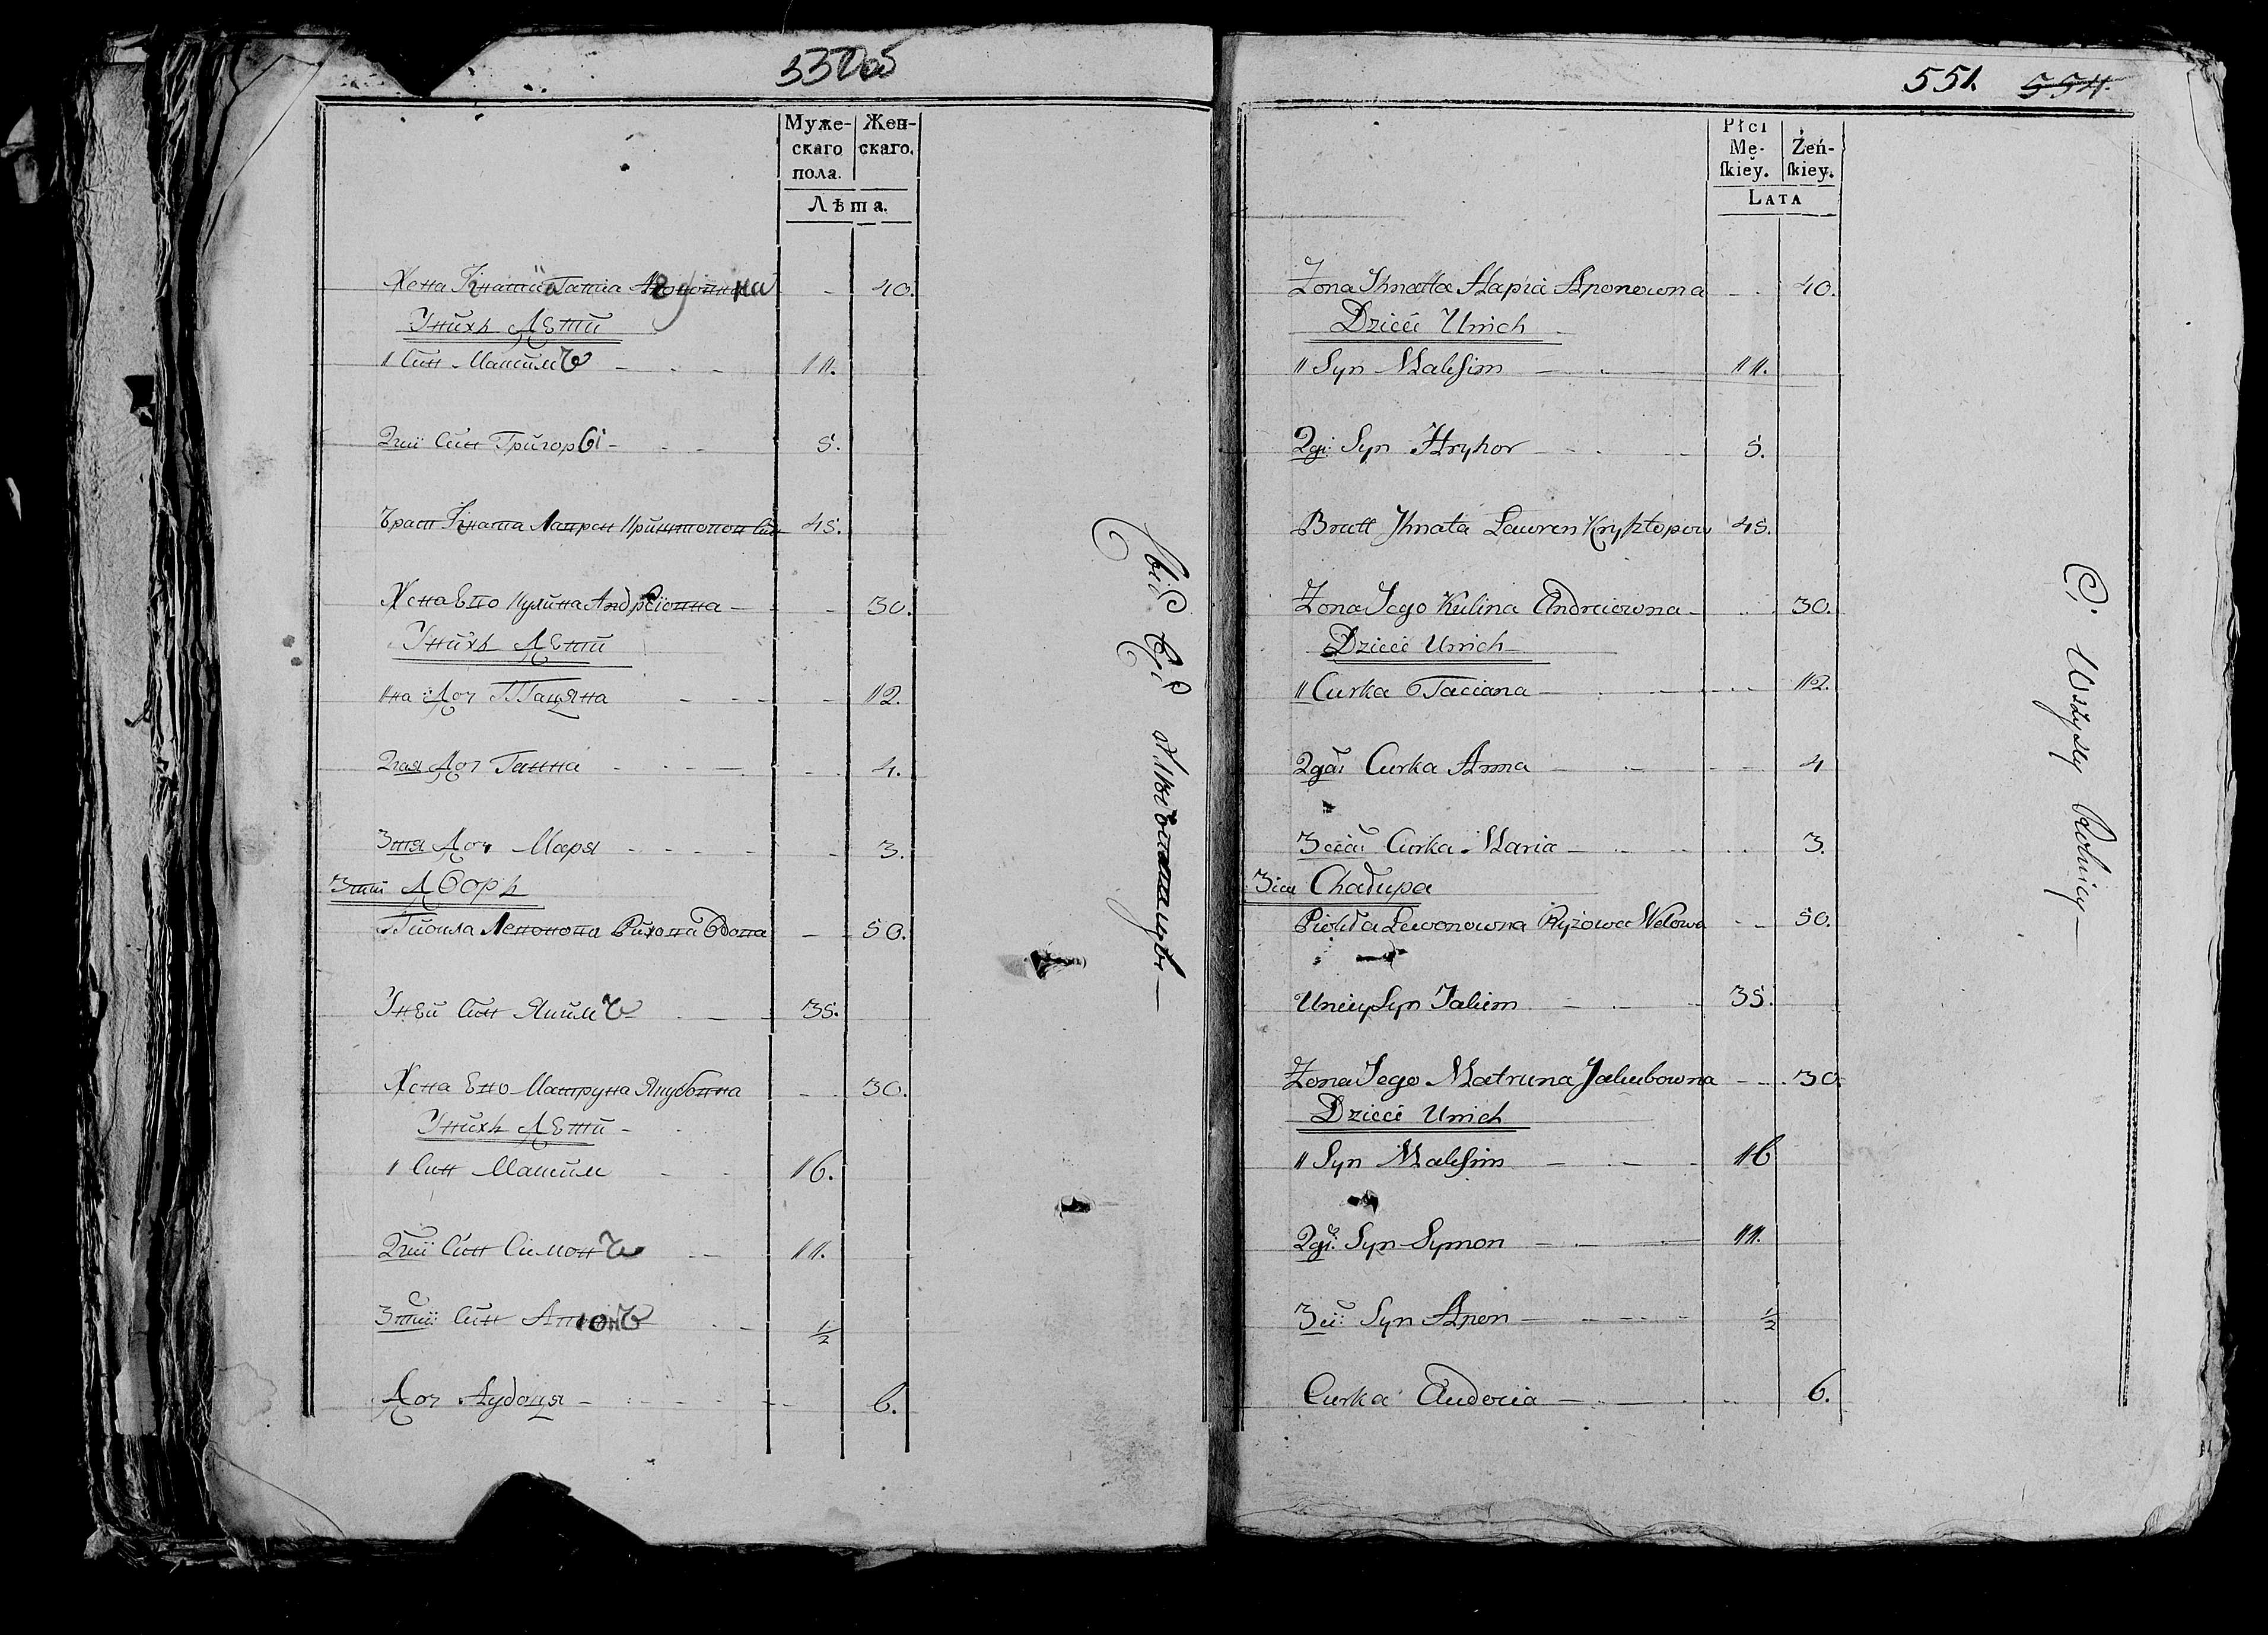 550об
Муже-
скаго
пола.
Жен-
скаго.
Лѣта.
Жена 40.
Унихъ Дети
1 Син Максимъ 11.
2гий Син Григорѣ 5.
Брат Ігната Лаврен Криштопов Син 45.
Жена Его Кулина Андреiовна 30.
Унихъ Дети
1на Доч Тацяна 12.
2гая Доч Ганна 4.
3тя Доч Маря 3.
3тий Дворъ
Левонова Рижова Вдова 50.
Уней Син Якимъ 35.
Жена Его Матруна Якубовна 30.
Унихъ Дети
1 Син Максим 16.
2гий Син Симонъ 11.
3тий Син 1/2
Доч Аудоця 6.
551. 554.
Płci
Mę-
ſkiey.
Żeń-
ſkiey.
LATA
Żona Ihnatta Hapia Aponowna 40.
Dzieci Unich
1 Syn Makſim 11.
2gi Syn Hryhor 5.
Bratt Ihnata Lawren Krysztopow 45.
Żona Jego Kulina Andreiowna 30.
Dzieci Unich
1 Curka Taciana 12.
2ga Curka Anna 4
3cia Curka Maria 3.
3cia Chałupa
Lewonowna Ryżowa Wdowa 50.
Uniey Syn Jakim 35.
Żona Jego Matruna Jakubowna 30.
Dzieci Unich
1 Syn Makſim 16
2gi Syn Symon 11.
3ci Syn Apon 1/2
Curka Audocia 6.
Ci Wszyscy Rolnicy